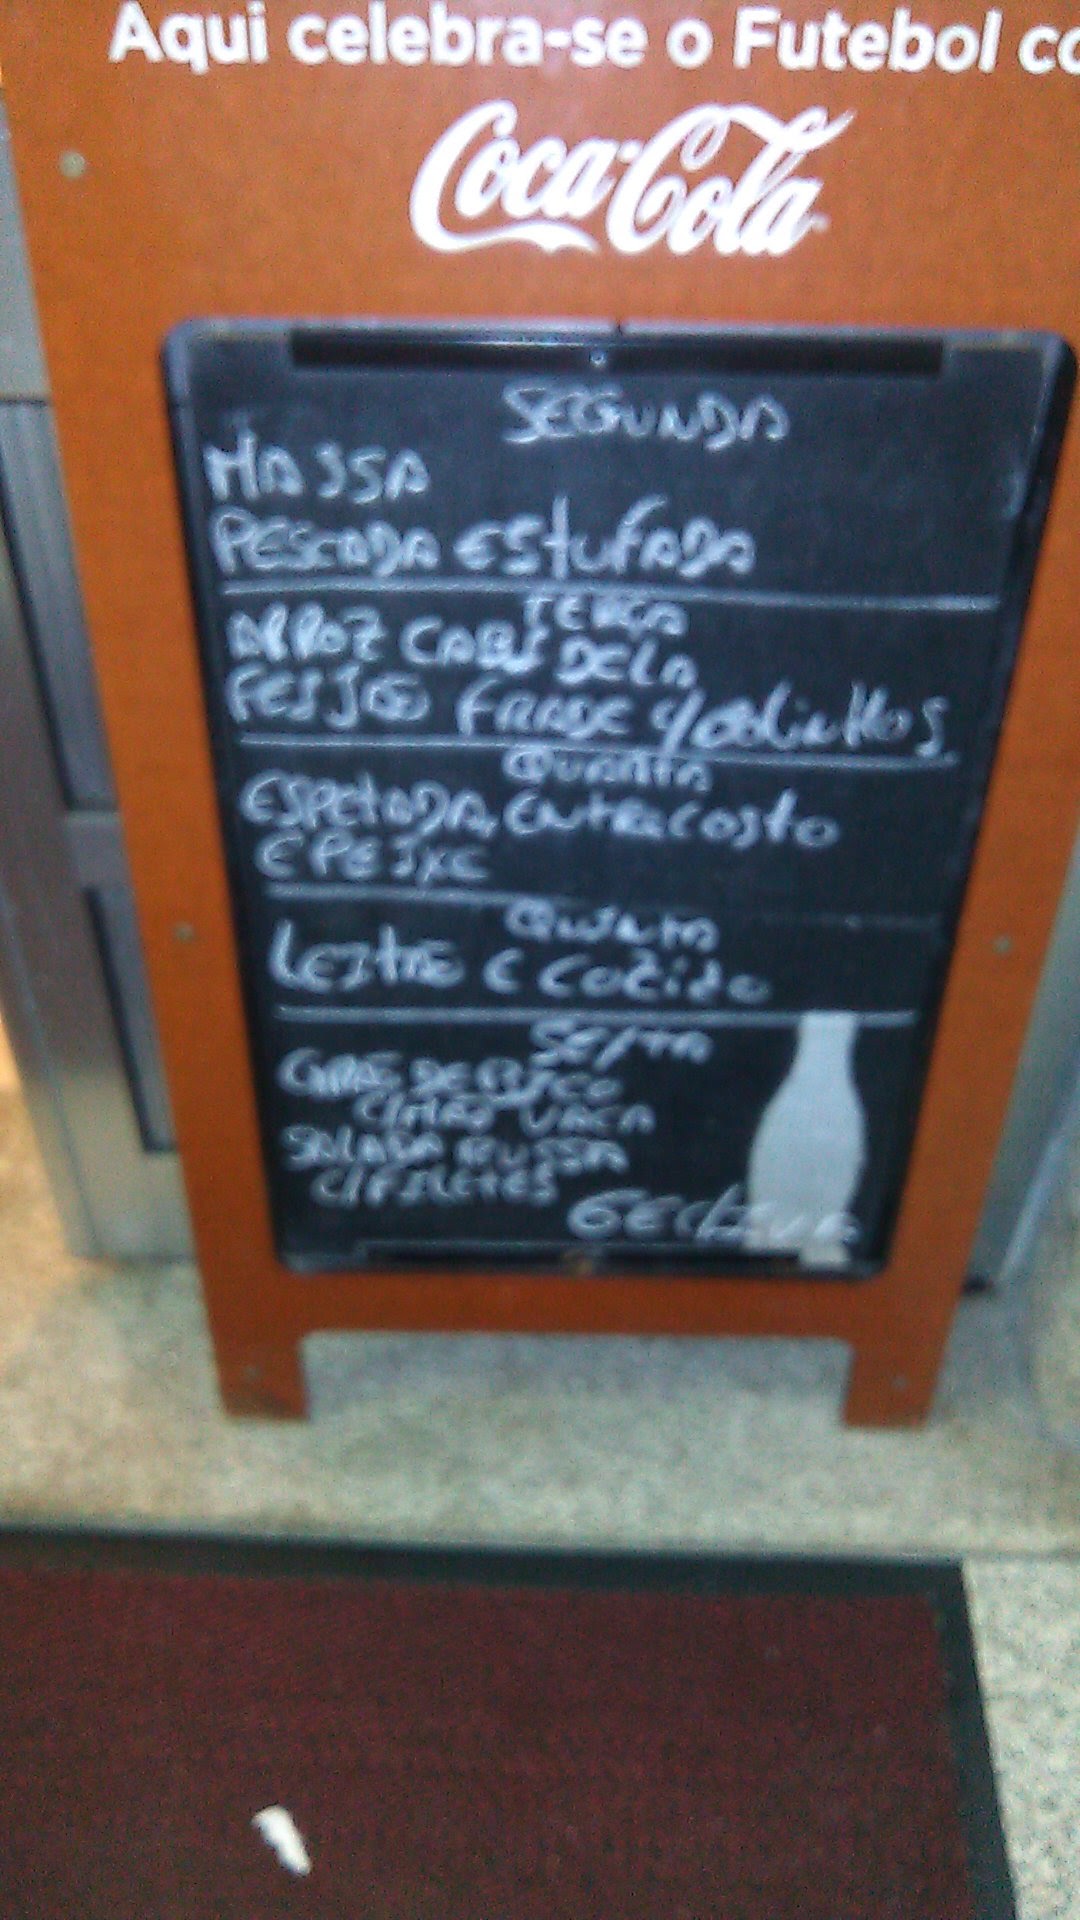 Aqui celebra-se o Futebol co
Coca-Cola
SEGUNDA
MASSA
PESCADA ESTUFADA
TERÇA
ARROZ CABIDELA
FEIJÃO FRADE C/ Jolinhos
QUARTA
ESPETADA, ENTRECOSTO
E PEIXE
QUINTA
LEITÃO E COZIDO
SEXTA
GRÃO DE BICO
C/MÃO VACA
SALADA RUSSA
C/FILETES